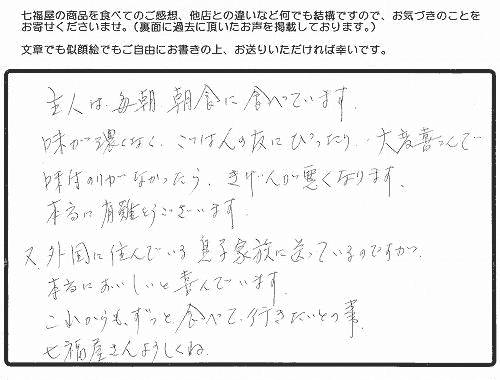 七福屋の商品を食べてのご感想、他店との違いなど何でも結構ですので、お気づきのことを
お寄せくださいませ。（裏面に過去に頂いたお声を掲載しております。）
文章でも似顔絵でもご自由にお書きの上、お送りいただければ幸いです。
主人は毎朝 朝食に食べています。
味が濃くなく、ごはんの友にぴったり、大変喜こんで
味付のりがなかったら、きげんが悪くなります。
本当に有難とうございます。
又、外国に住んでいる息子家族に送っているのですが、
本当においしいと喜んでいます。
これからも、ずっと食べて行きたいとの事、
七福屋さんよろしくね